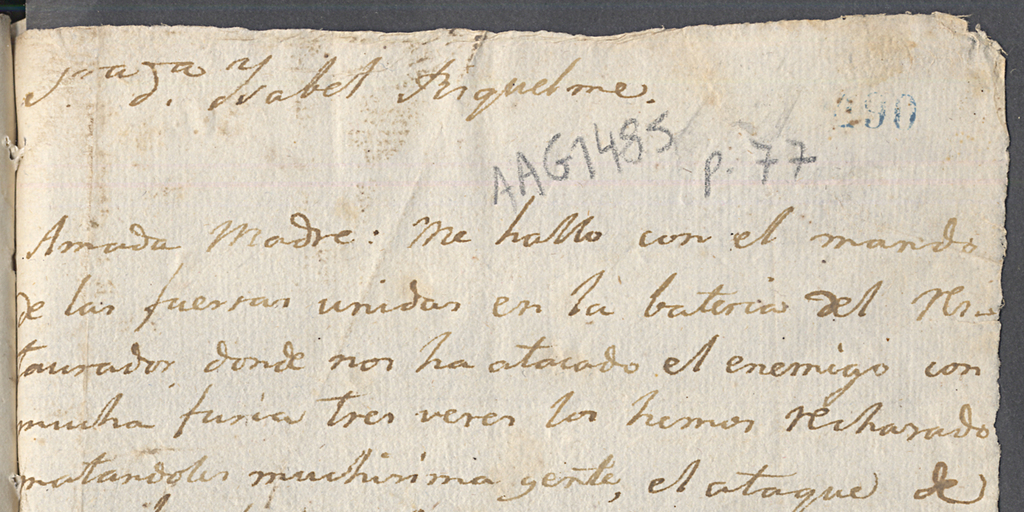 S.ra D.a Ysabel Riquelme.
290
AAG1485 p. 77
Amada Madre: Me hallo con el mando
de las fuersas unidas en la bateria del Res-
taurador donde nos ha atacado el enemigo con
mucha furia tres veces los hemos rechasado
matandoles muchisima gente, el ataque de